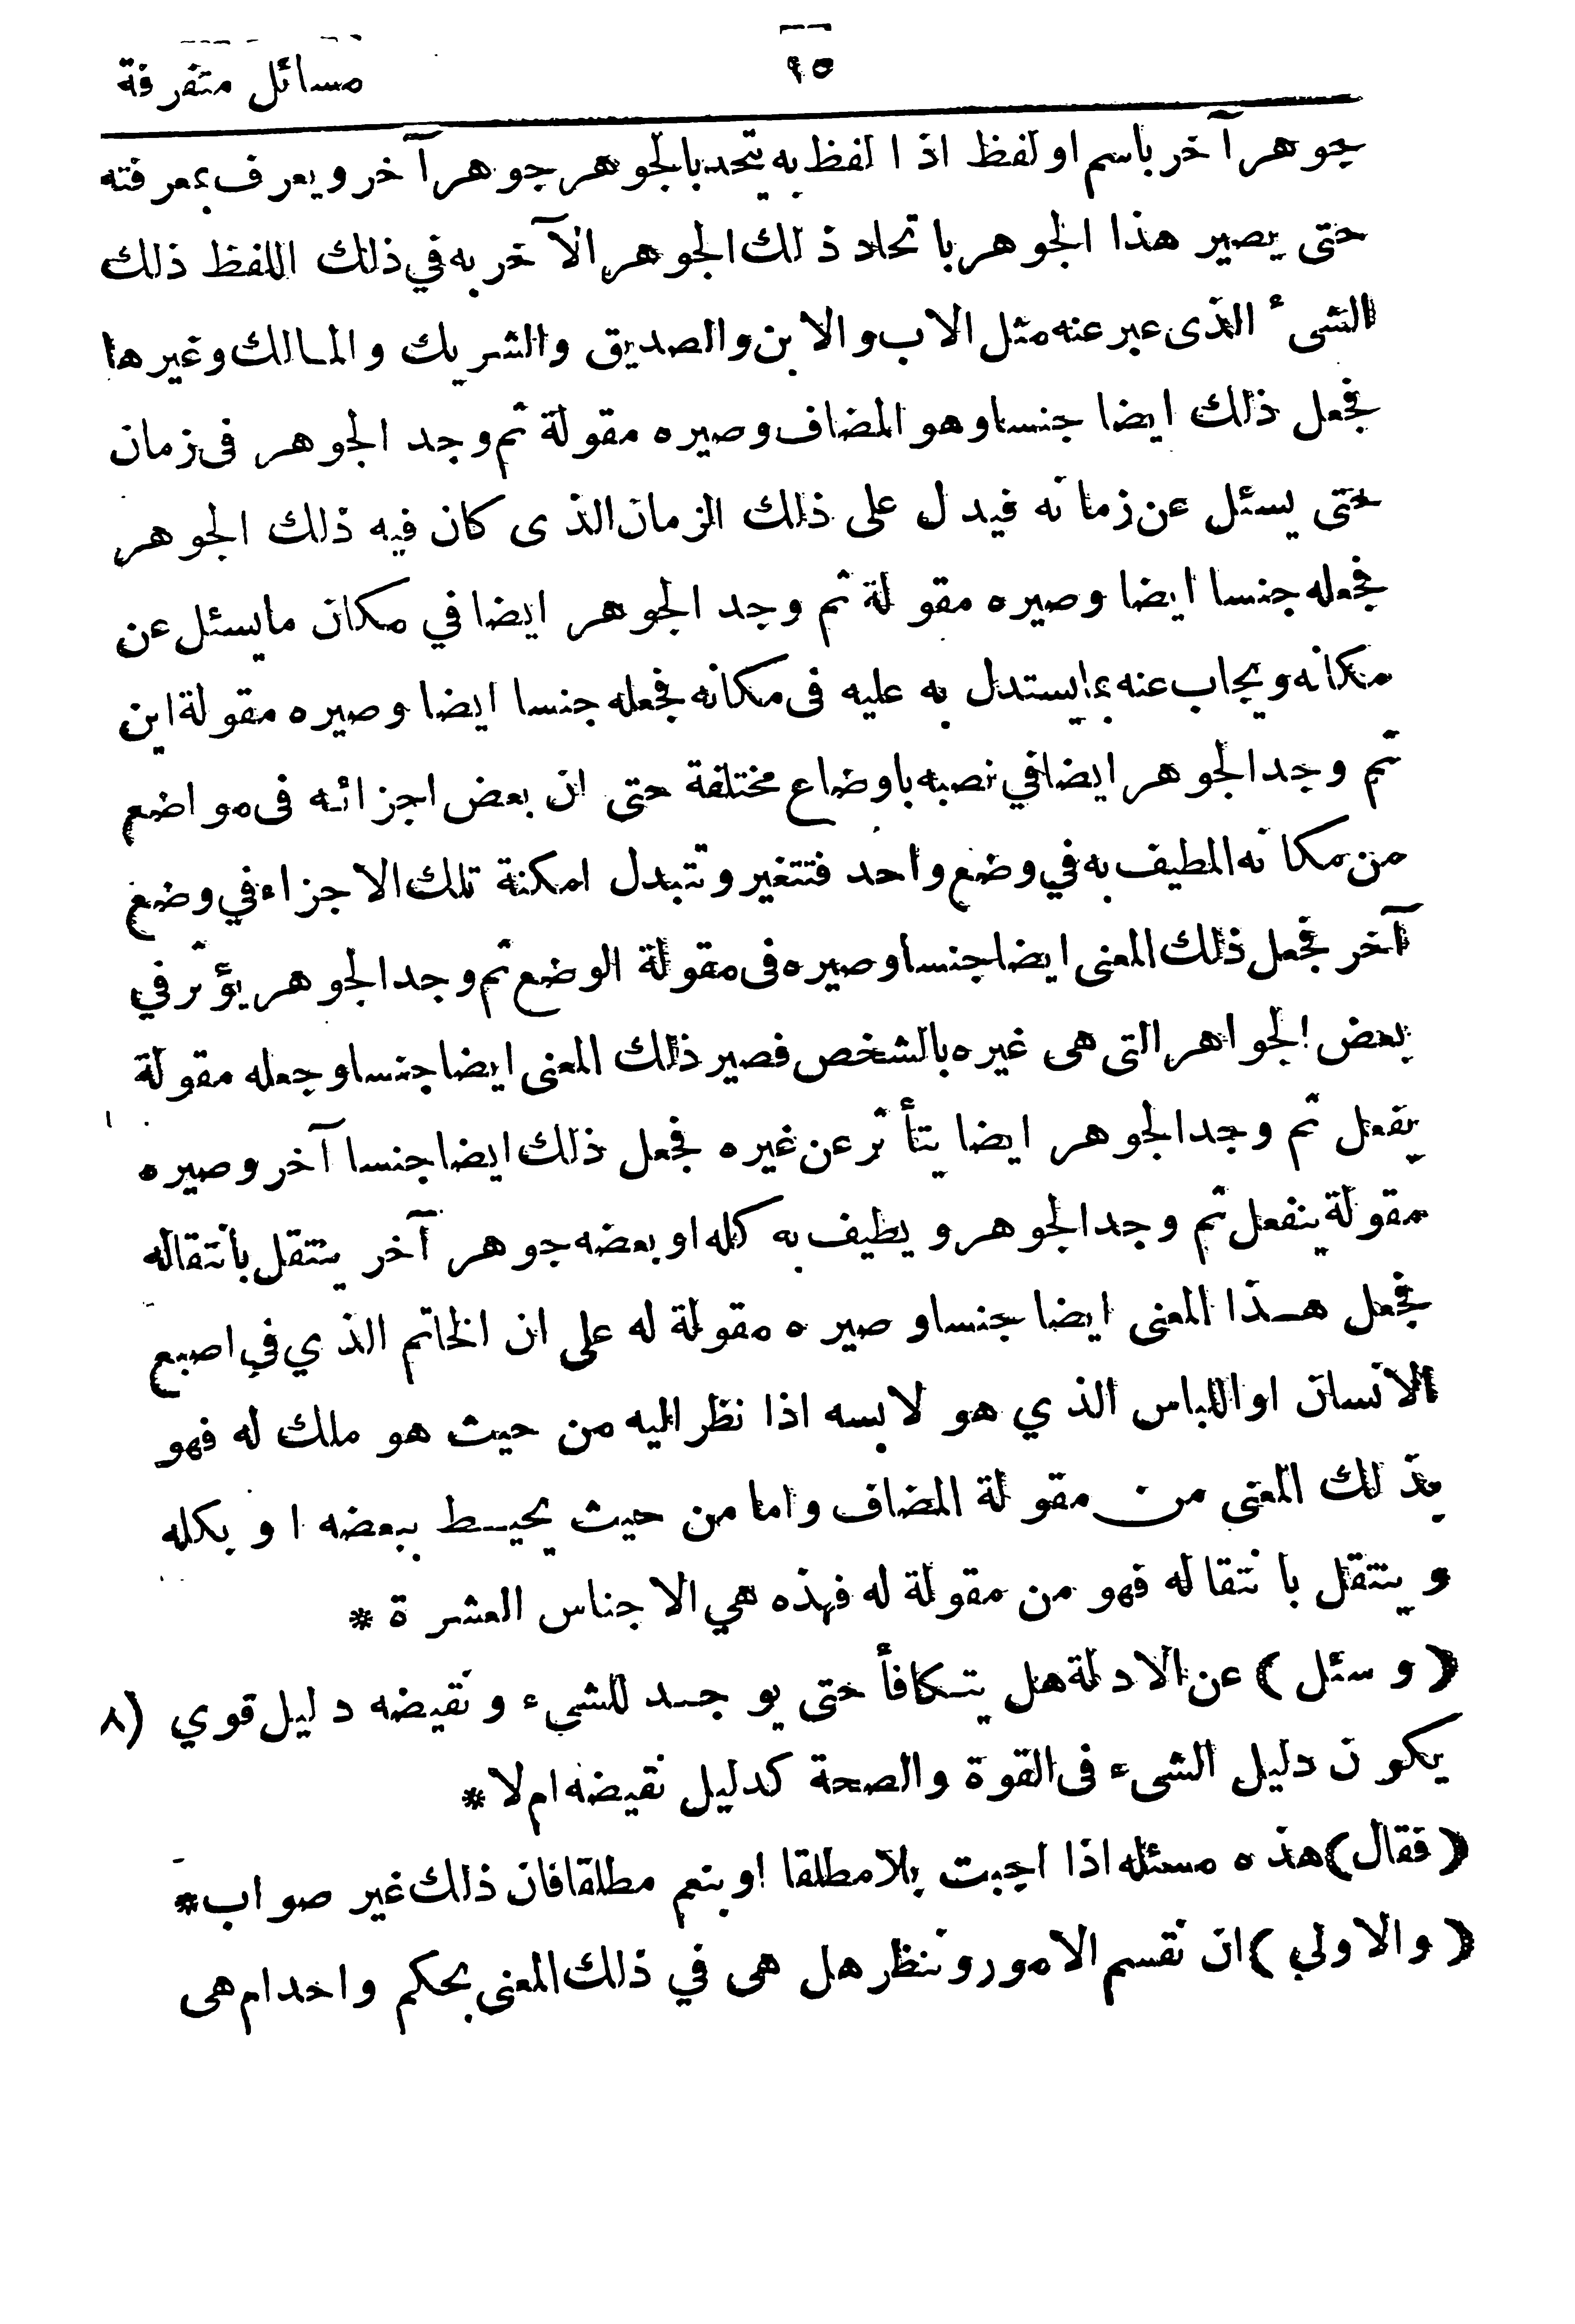 مسائل متفرقة
١٥
جوهر آخر باسم او لفظ اذا لفظ به يتحد بالجوهر جوهر آخر ويعرف بمعرفته
حتى يصير هذا الجوهر باتحاد ذلك الجوهر الآخر به في ذلك اللفظ ذلك
الشىء الذى عبر عنه مثل الاب والابن والصديق والشريك والمالك وغيرها
فجعل ذلك ايضا جنسا وهو المضاف وصيره مقولة ثم وجد الجوهر فى زمان
حتى يسئل عن زمانه فيدل على ذلك الزمان الذى كان فيه ذلك الجوهر
فجعله جنسا ايضا وصيره مقولة ثم وجد الجوهر ايضا في مكان ما يسئل عن
مكانه ويجاب عنه بما يستدل به عليه فى مكانه فجعله جنسا ايضا وصيره مقولة اين
ثم وجد الجوهر ايضا في نصبه باوضاع مختلفة حتى ان بعض اجزائه فى مواضع
من مكانه المطيف به في وضع واحد فتتغير وتتبدل امكنة تلك الاجزاء في وضع
آخر فجعل ذلك المعنى ايضا جنسا وصيره فى مقولة الوضع ثم وجد الجوهر يؤثر في
بعض الجواهر التى هى غيره بالشخص فصير ذلك المعنى ايضا جنسا وجعله مقولة
يفعل ثم وجد الجوهر ايضا يتأثر عن غيره فجعل ذلك ايضا جنسا آخر وصيره
مقولة ينفعل ثم وجد الجوهر ويطيف به كله او بعضه جوهر آخر ينتقل بانتقاله
فجعل هذا المعنى ايضا جنسا وصيره مقولة له على ان الخاتم الذي في اصبع
الانسان او اللباس الذي هو لابسه اذا نظر اليه من حيث هو ملك له فهو
بذلك المعنى من مقولة المضاف واما من حيث يحيط ببعضه او بكله
وينتقل بانتقاله فهو من مقولة له فهذه هي الاجناس العشرة *
(وسئل) عن الادلة هل يتكافأ حتى يوجد للشيء ونقيضه دليل قوي (٨
يكون دليل الشىء فى القوة والصحة كدليل نقيضه ام لا *
(فقال) هذه مسئله اذا اجبت بلا مطلقا او بنعم مطلقا فان ذلك غير صواب *
(والاولي) ان نقسم الامور وننظر هل هى في ذلك المعنى بحكم واحد ام هى